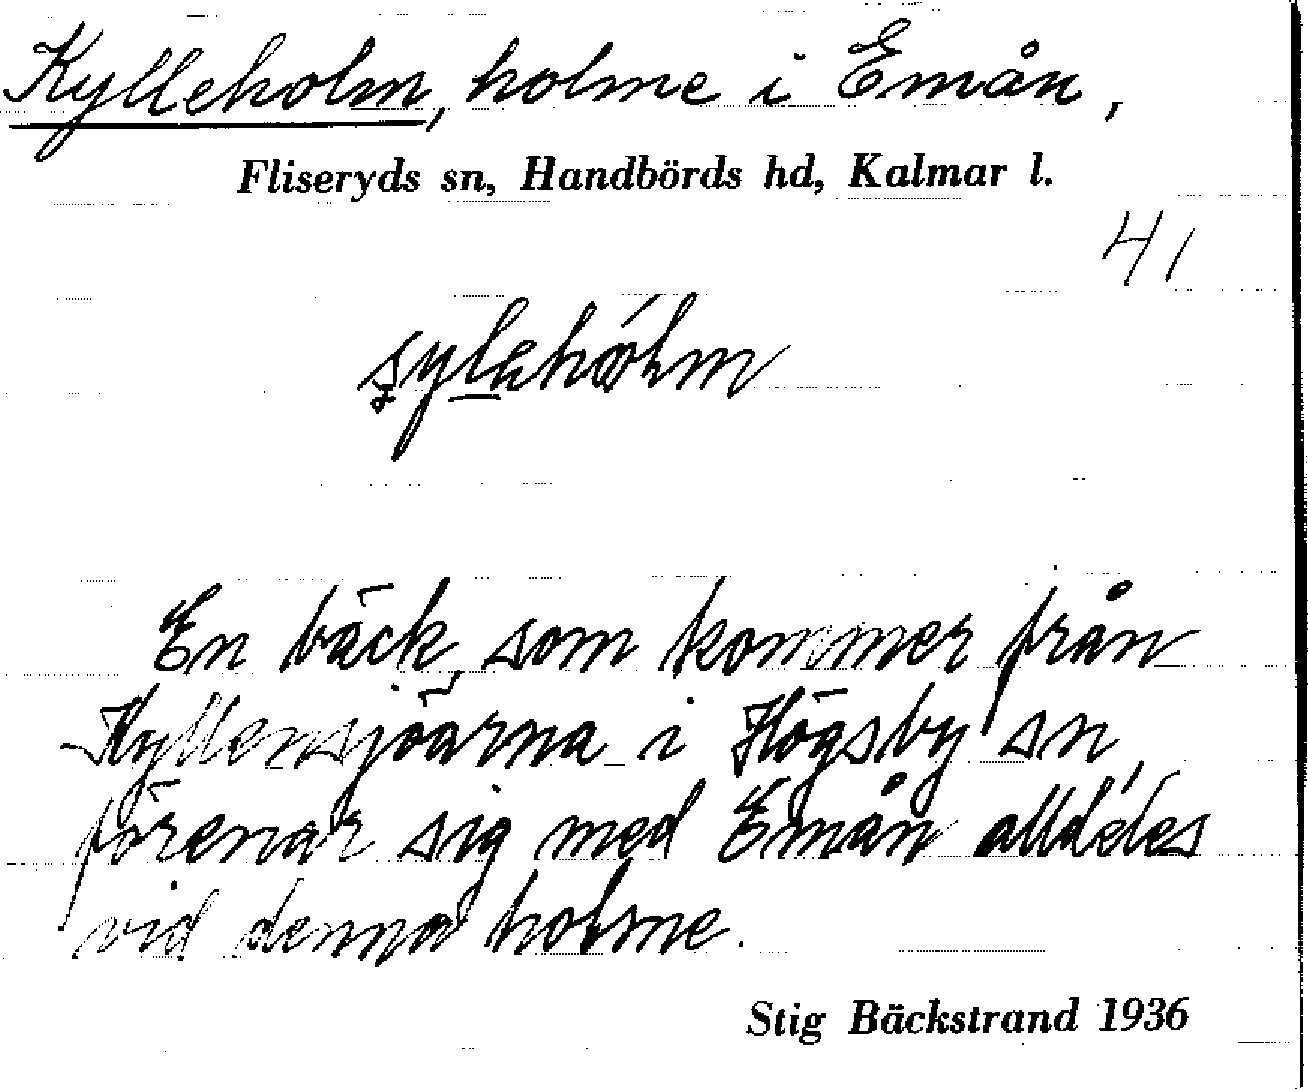 Kylleholm, holme i Emån,
Fliseryds sn, Handbörds hd, Kalmar l.
41
En bäck, som kommer från
Kyllensjöarna i Högsby sn,
förenar sig med Emån alldeles
vid denna holme.
Stig Bäckstrand 1936